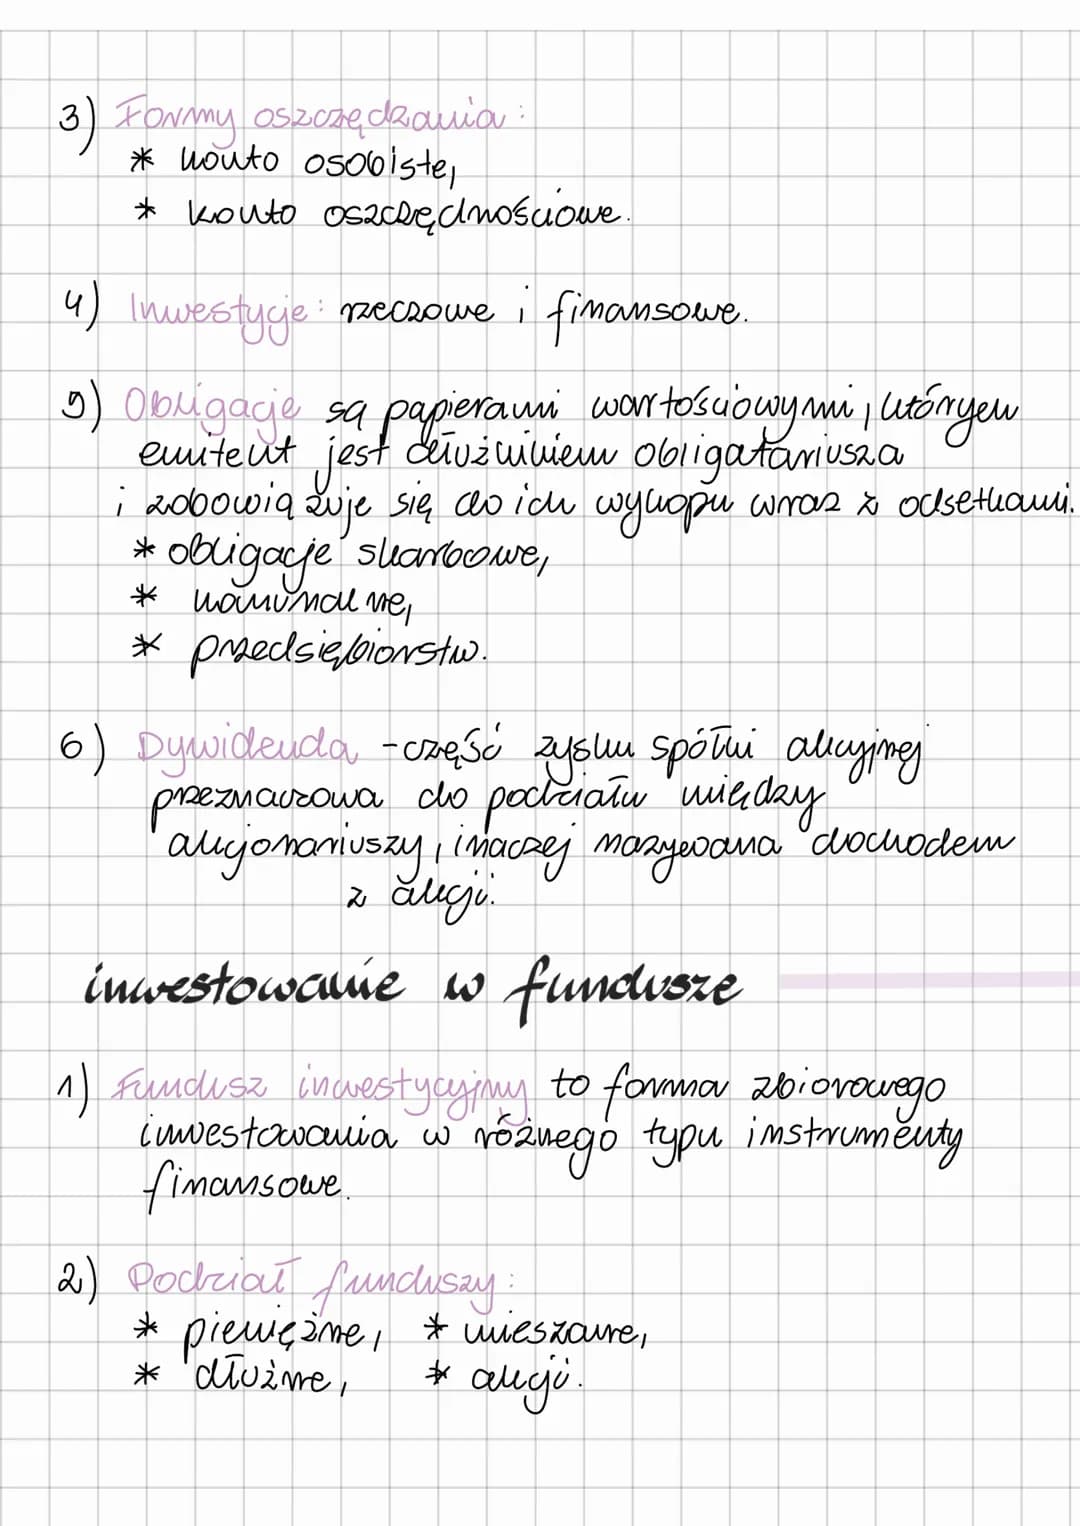 3) Formy oszczędzania:
* konto osobiste,
* konto oszczędnościowe.
4) Inwestycje: rzeczowe i finansowe.
5) Obligacje są papierami wartościowymi, których
emitent jest dłużnikiem obligatariusza
i zobowiązuje się do ich wykopu wraz z odsetkami.
* obligacje skarbowe,
* komunalne,
* przedsiębiorstw.
6) Dywidenda - część zysku spółki akcyjnej
przeznaczowa do podziału między
akcjonariuszy, inaczej nazywana dochodem
z akcji.
inwestowanie w fundusze
1) Fundusz inwestycyjny to forma zbiorowego
inwestowania w różnego typu instrumenty
finansowe.
2) Podział funduszy:
* pieniężne, * mieszane,
* dłużne, * akcji.